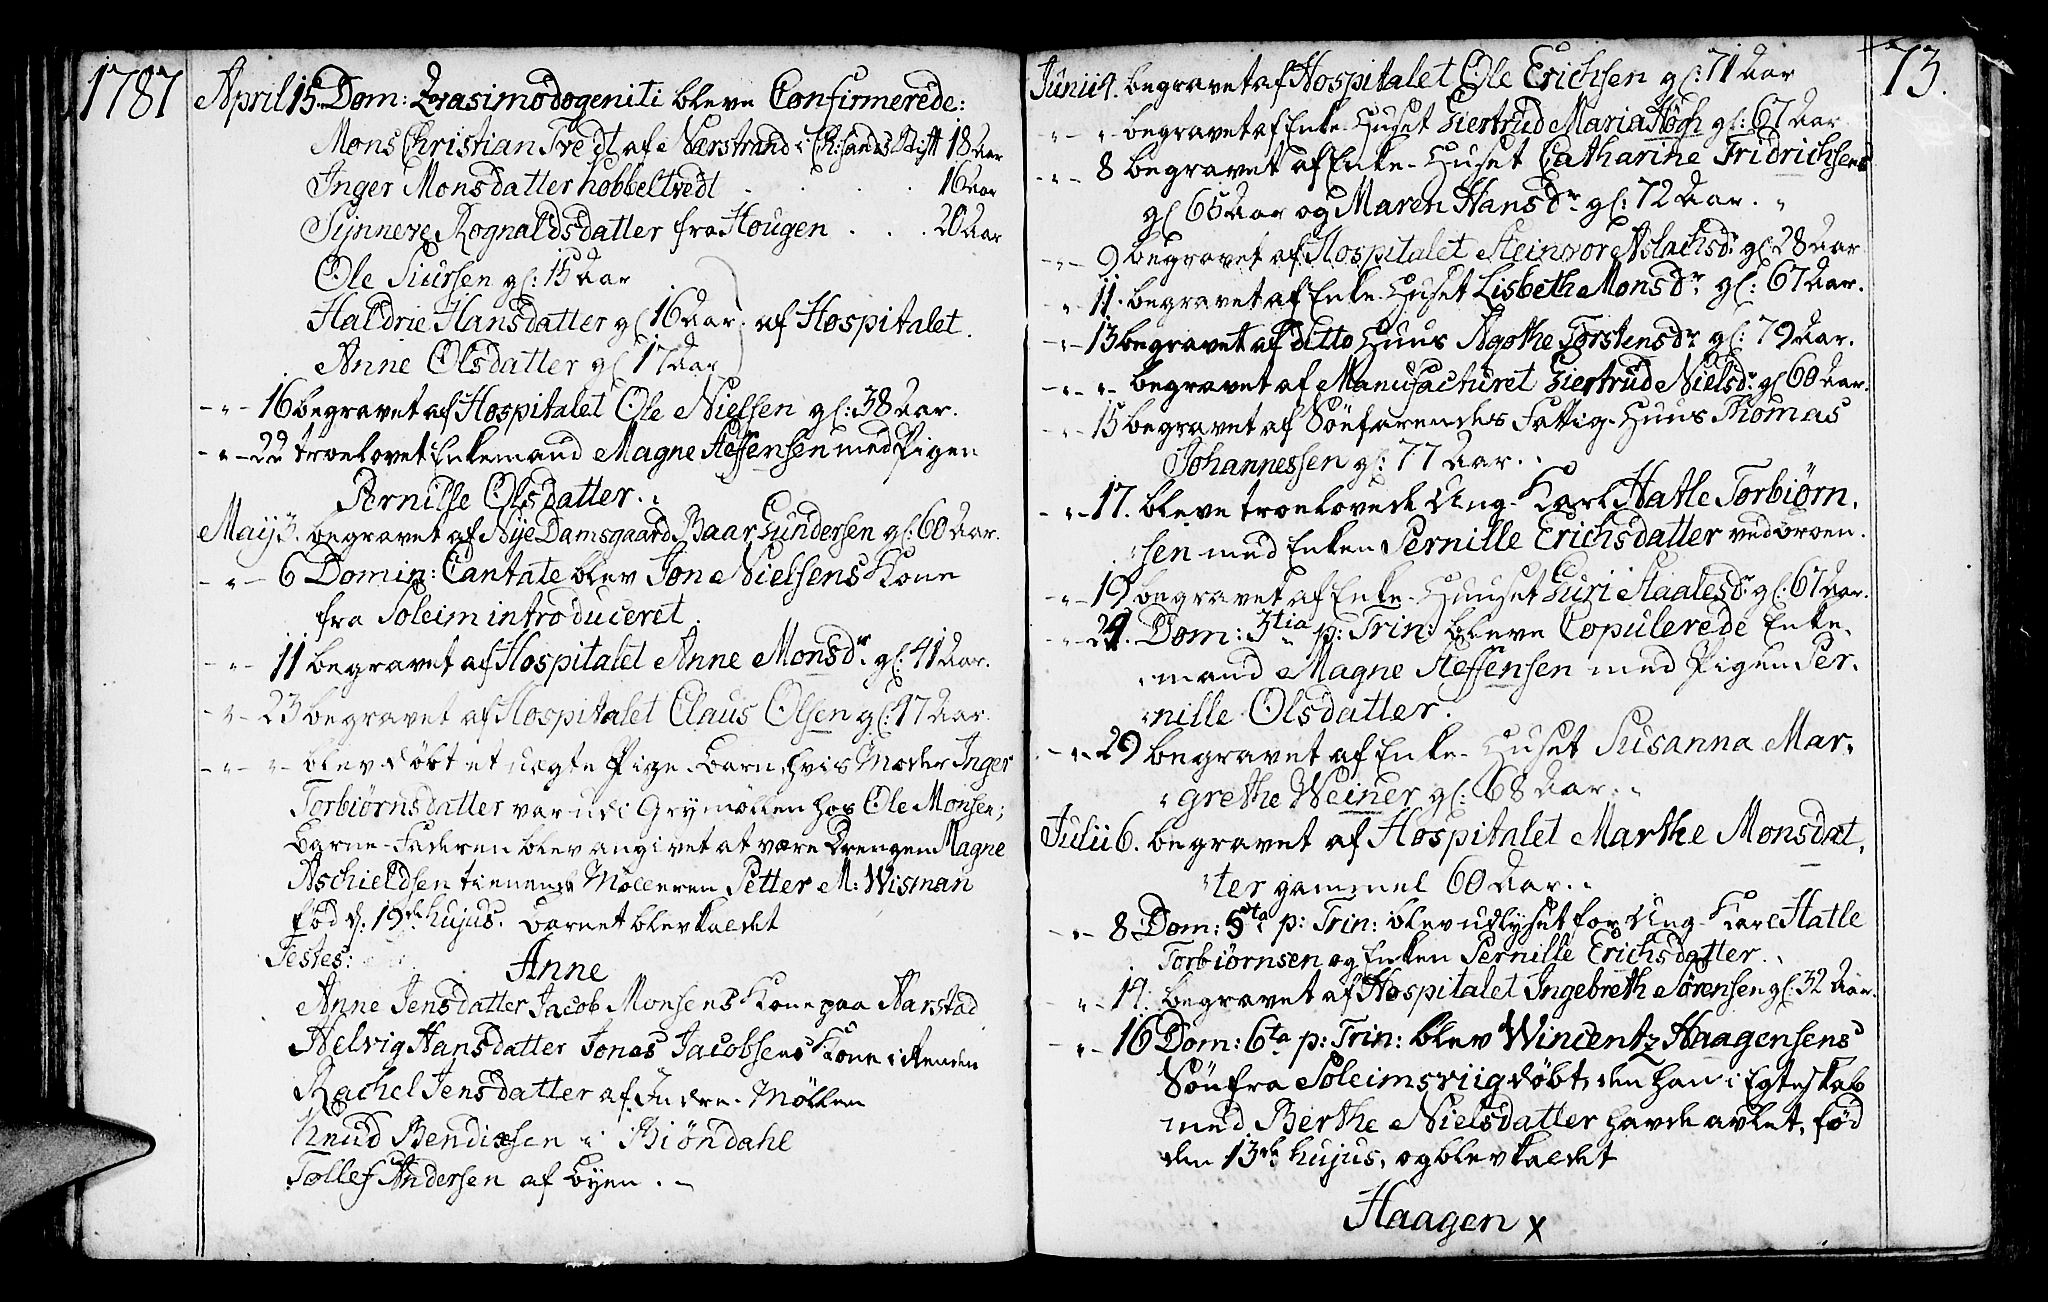 1787
April 15. Dom: Qvasimodogeniti bleve Confirmerede:
Mons Christian Tvedt af Narstrand i Ch:sands Stift 18 Aar
Inger Monsdatter hobbeltvedt . . . . 16 Aar
Synneve Rognaldsdatter fra Hougen . . . 20 Aar
Ole Siursen gl: 15 Aar
Haldrie Hansdatter gl 16 Aar af Hospitalet.
Anne Olsdatter gl 17 Aar
- " - 16 begravet af Hospitalet Ole Nielsen gl: 38 Aar.
- " - 22 troelovet Enkemand Magne Steffensen med Pigen
Pernille Olsdatter.
May 3. begravet af Nye Damsgaard Baar Gundersen gl: 60 Aar.
- " - 6 Domin: Cantate blev Jon Nielsens Kone
fra Soleim introduceret.
- " - 11 begravet af Hospitalet Anne Monsdr. gl: 41 Aar.
- " - 23 begravet af Hospitalet Claus Olsen gl: 47 Aar.
- " - " - blev døbt et uegte Pige-Barn, hvis Moder Inger
Torbiørnsdatter var ude i Grymøllen hos Ole Monsen;
Barne-Faderen blev angivet at være Drengen Magne
Aschieldsen tienende Mølleren Petter M: Wisman
fød d. 19de hujus. Barnet blev kaldet
Testes: Anne
Anne Jensdatter Jacob Monsens Kone paa Aarstad
Helvig Hansdatter Jonas Jacobsens Kone i
Rachel Jensdatter af Indre-Møllen
Knud Bendixsen i Biöndahl
Tollef Andersen af Byen. -
73.
Junii 4. begravet af Hospitalet Ole Erichsen gl: 71 Aar
- " begravet af Enke-Huset Giertrud Maria Høgh gl: 67 Aar
- " - 8 begravet af Enke-Huset Catharine Fridrichsens
gl 65 Aar og Maren Hansdr. gl: 72 Aar.
- " - 9 begravet af Hospitalet Steinvor Aslachsdr. gl 28 Aar
- " 11. begravet af Enke-Huset Lisbeth Monsdr. gl: 67 Aar.
- " - 13 begravet af ditto Huus Agothe Torstensdr gl: 79 Aar.
- " " - begravet af Manufacturet Giertrud Nielsdr. gl 60 Aar.
- " - 15 begravet af Söefarendes Fattig-Huus Thomas
Johannessen gl: 77 Aar.
- " - 17. bleve troelovede Ung-Karl Hatle Torbiørn,
"sen med Enken Pernille Erichsdatter ved Broen.
- " - 19 begravet af Enke-Huuset Guri Staalesdr. gl: 67 Aar.
- " 24. Dom: 3tia p: Trin: bleve Copulerede Enke,
"mand Magne Steffensen med Pigen Per,
"nille Olsdatter.
- " - 29 begravet af Enke-Huset Susanna Mar,
"grethe Weiner gl: 68 Aar.
Julii 6. begravet af Hospitalet Marthe Monsdat,
"ter gammel 60 Aar.
- " - 8 Dom: 5ta p: Trin: blev udlyset for Ung-Karl Hatle
Torbiørnsen og Enken Pernille Erichsdatter.
" - 14. begravet af Hospitalet Ingebreth Sørensen gl: 32 Aar.
- " - 16 Dom: 6ta p: Trin: blev Wincentz Haagensens
Sön fra Soleimsviig döbt, den han i Egteskab
med Berthe Nielsdatter havde avlet, fød
den 13de hujus, og blev kaldet
Haagen x